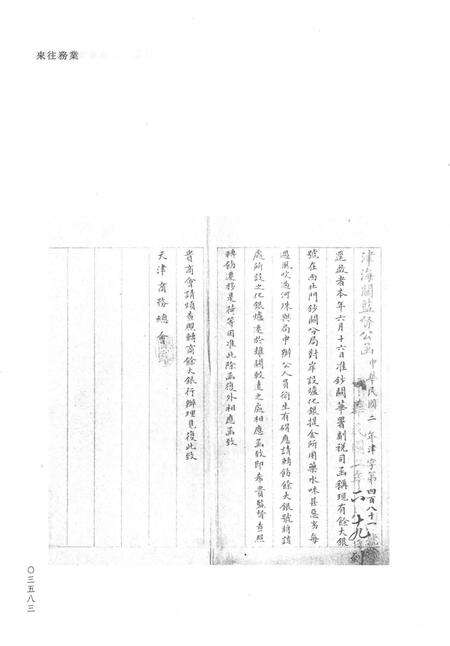 業務往來
津海關監督公函中華民國二年津字第四百八十一
六 十九
逕啟者本年六月十六日准鈔關華署副稅司函稱現有餘大銀
號在西北門鈔關分局對岸設爐化銀提金所用藥水味甚惡當每
遇風吹過河殊與局中辦公人員衛生有碍應請轉飭餘大銀號將請
處所設之化銀爐遷於離關較遠之處相應函致即希貴監督查照
轉飭遷移是荷等因准此除函復外相應函致
貴商會請煩查照轉商餘大銀行辦理見復此致
天津商務總會
〇三五八三